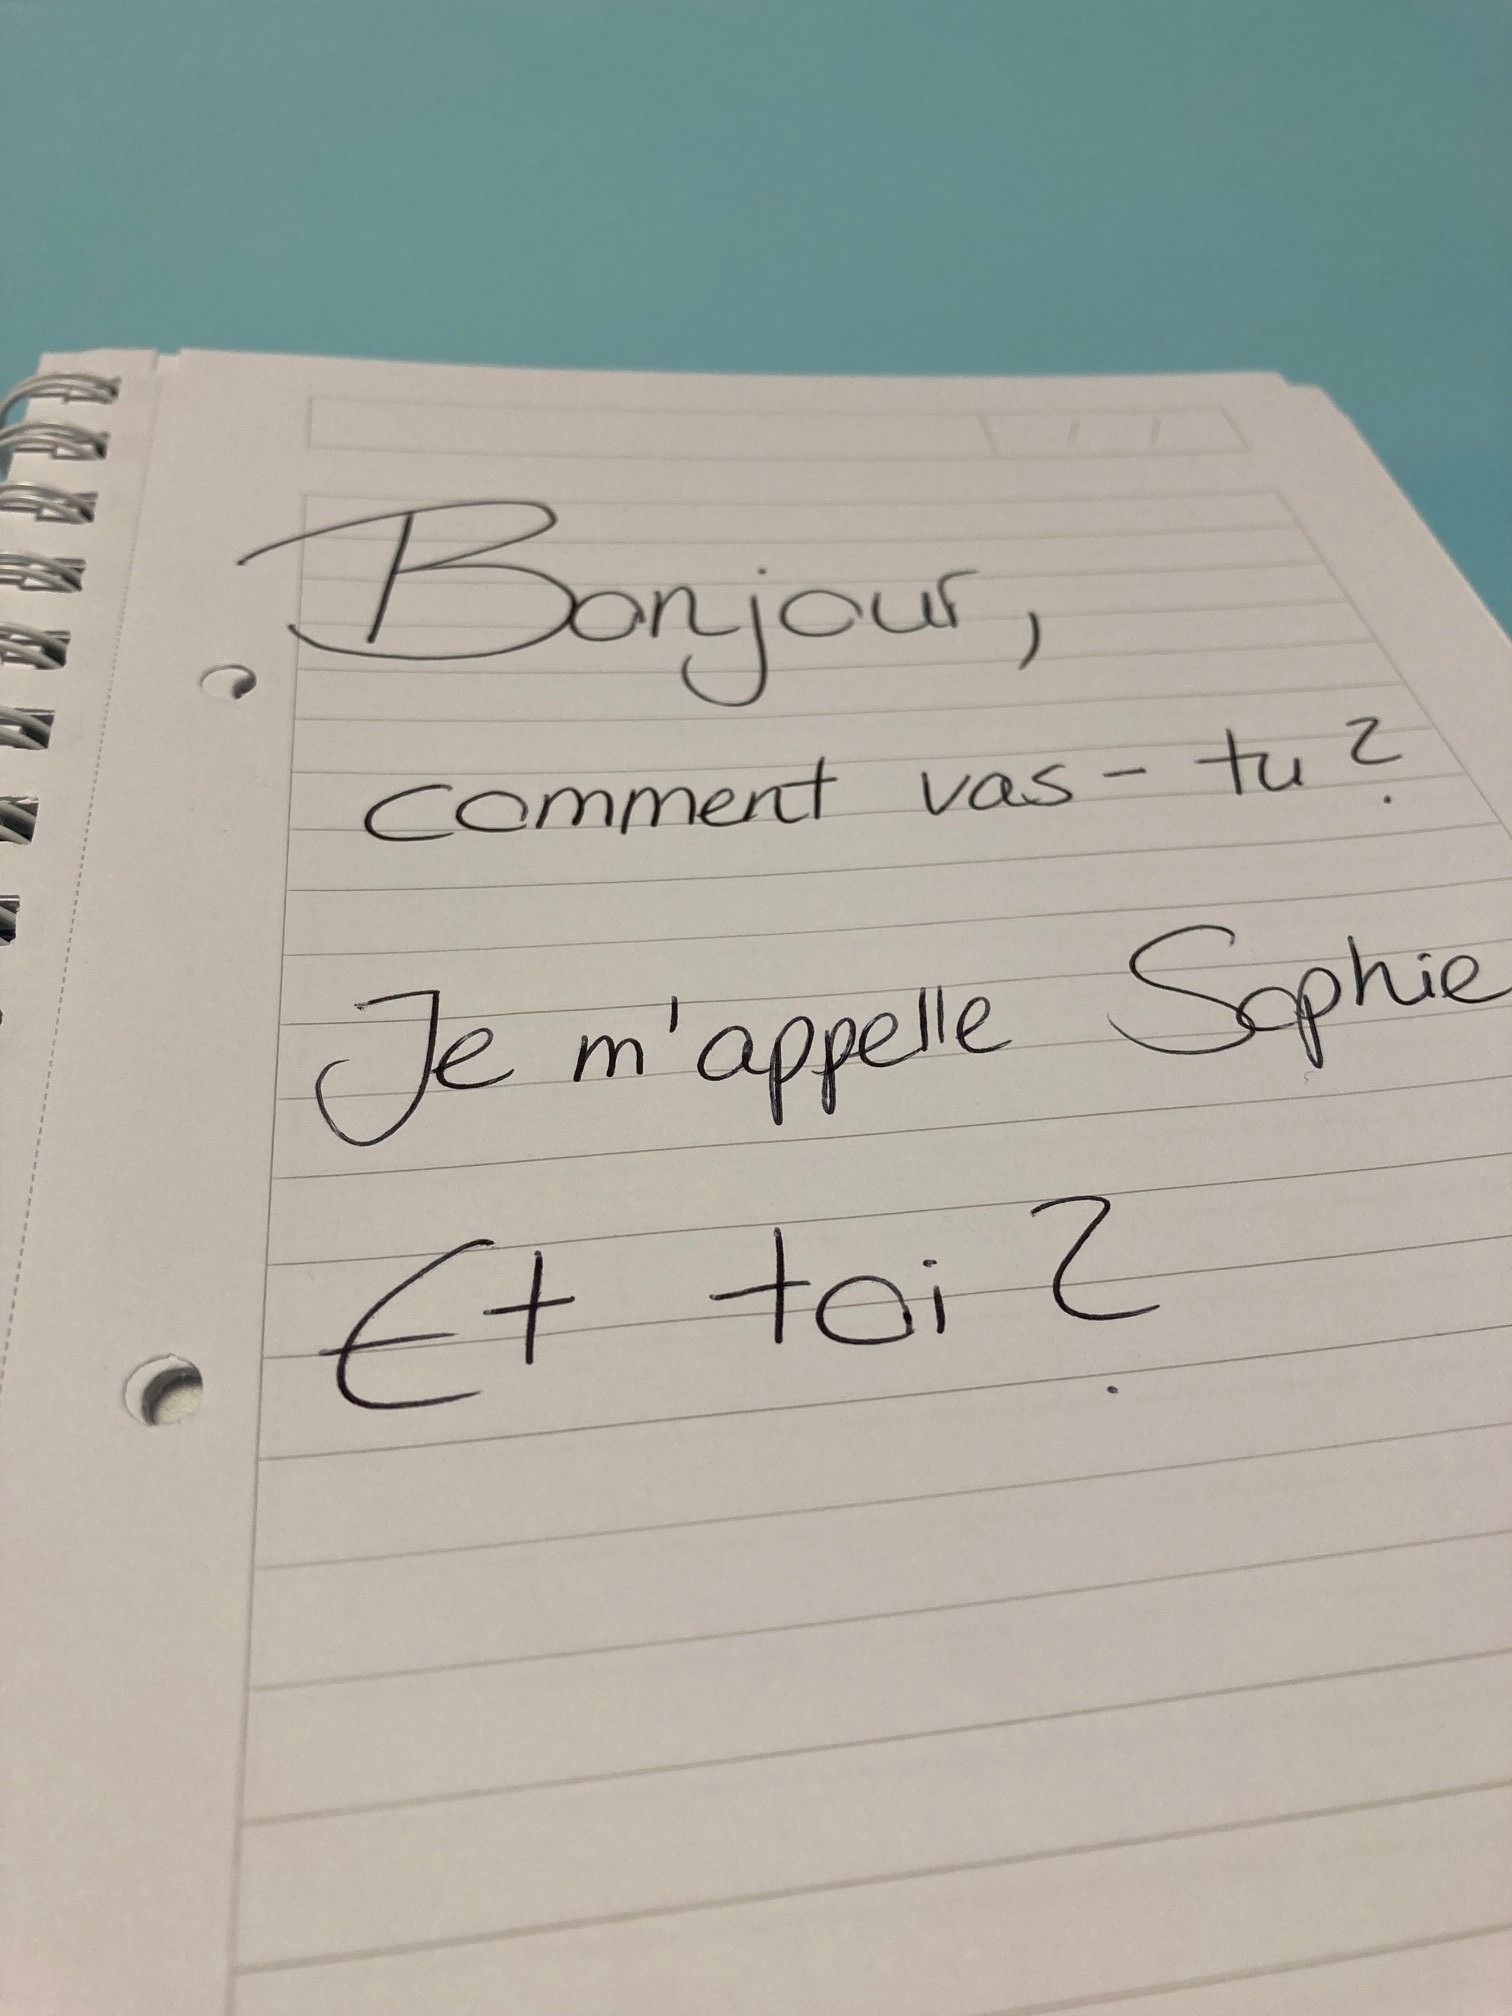 Bonjour,
comment vas-tu ?
Je m'appelle Sophie
Et toi ?